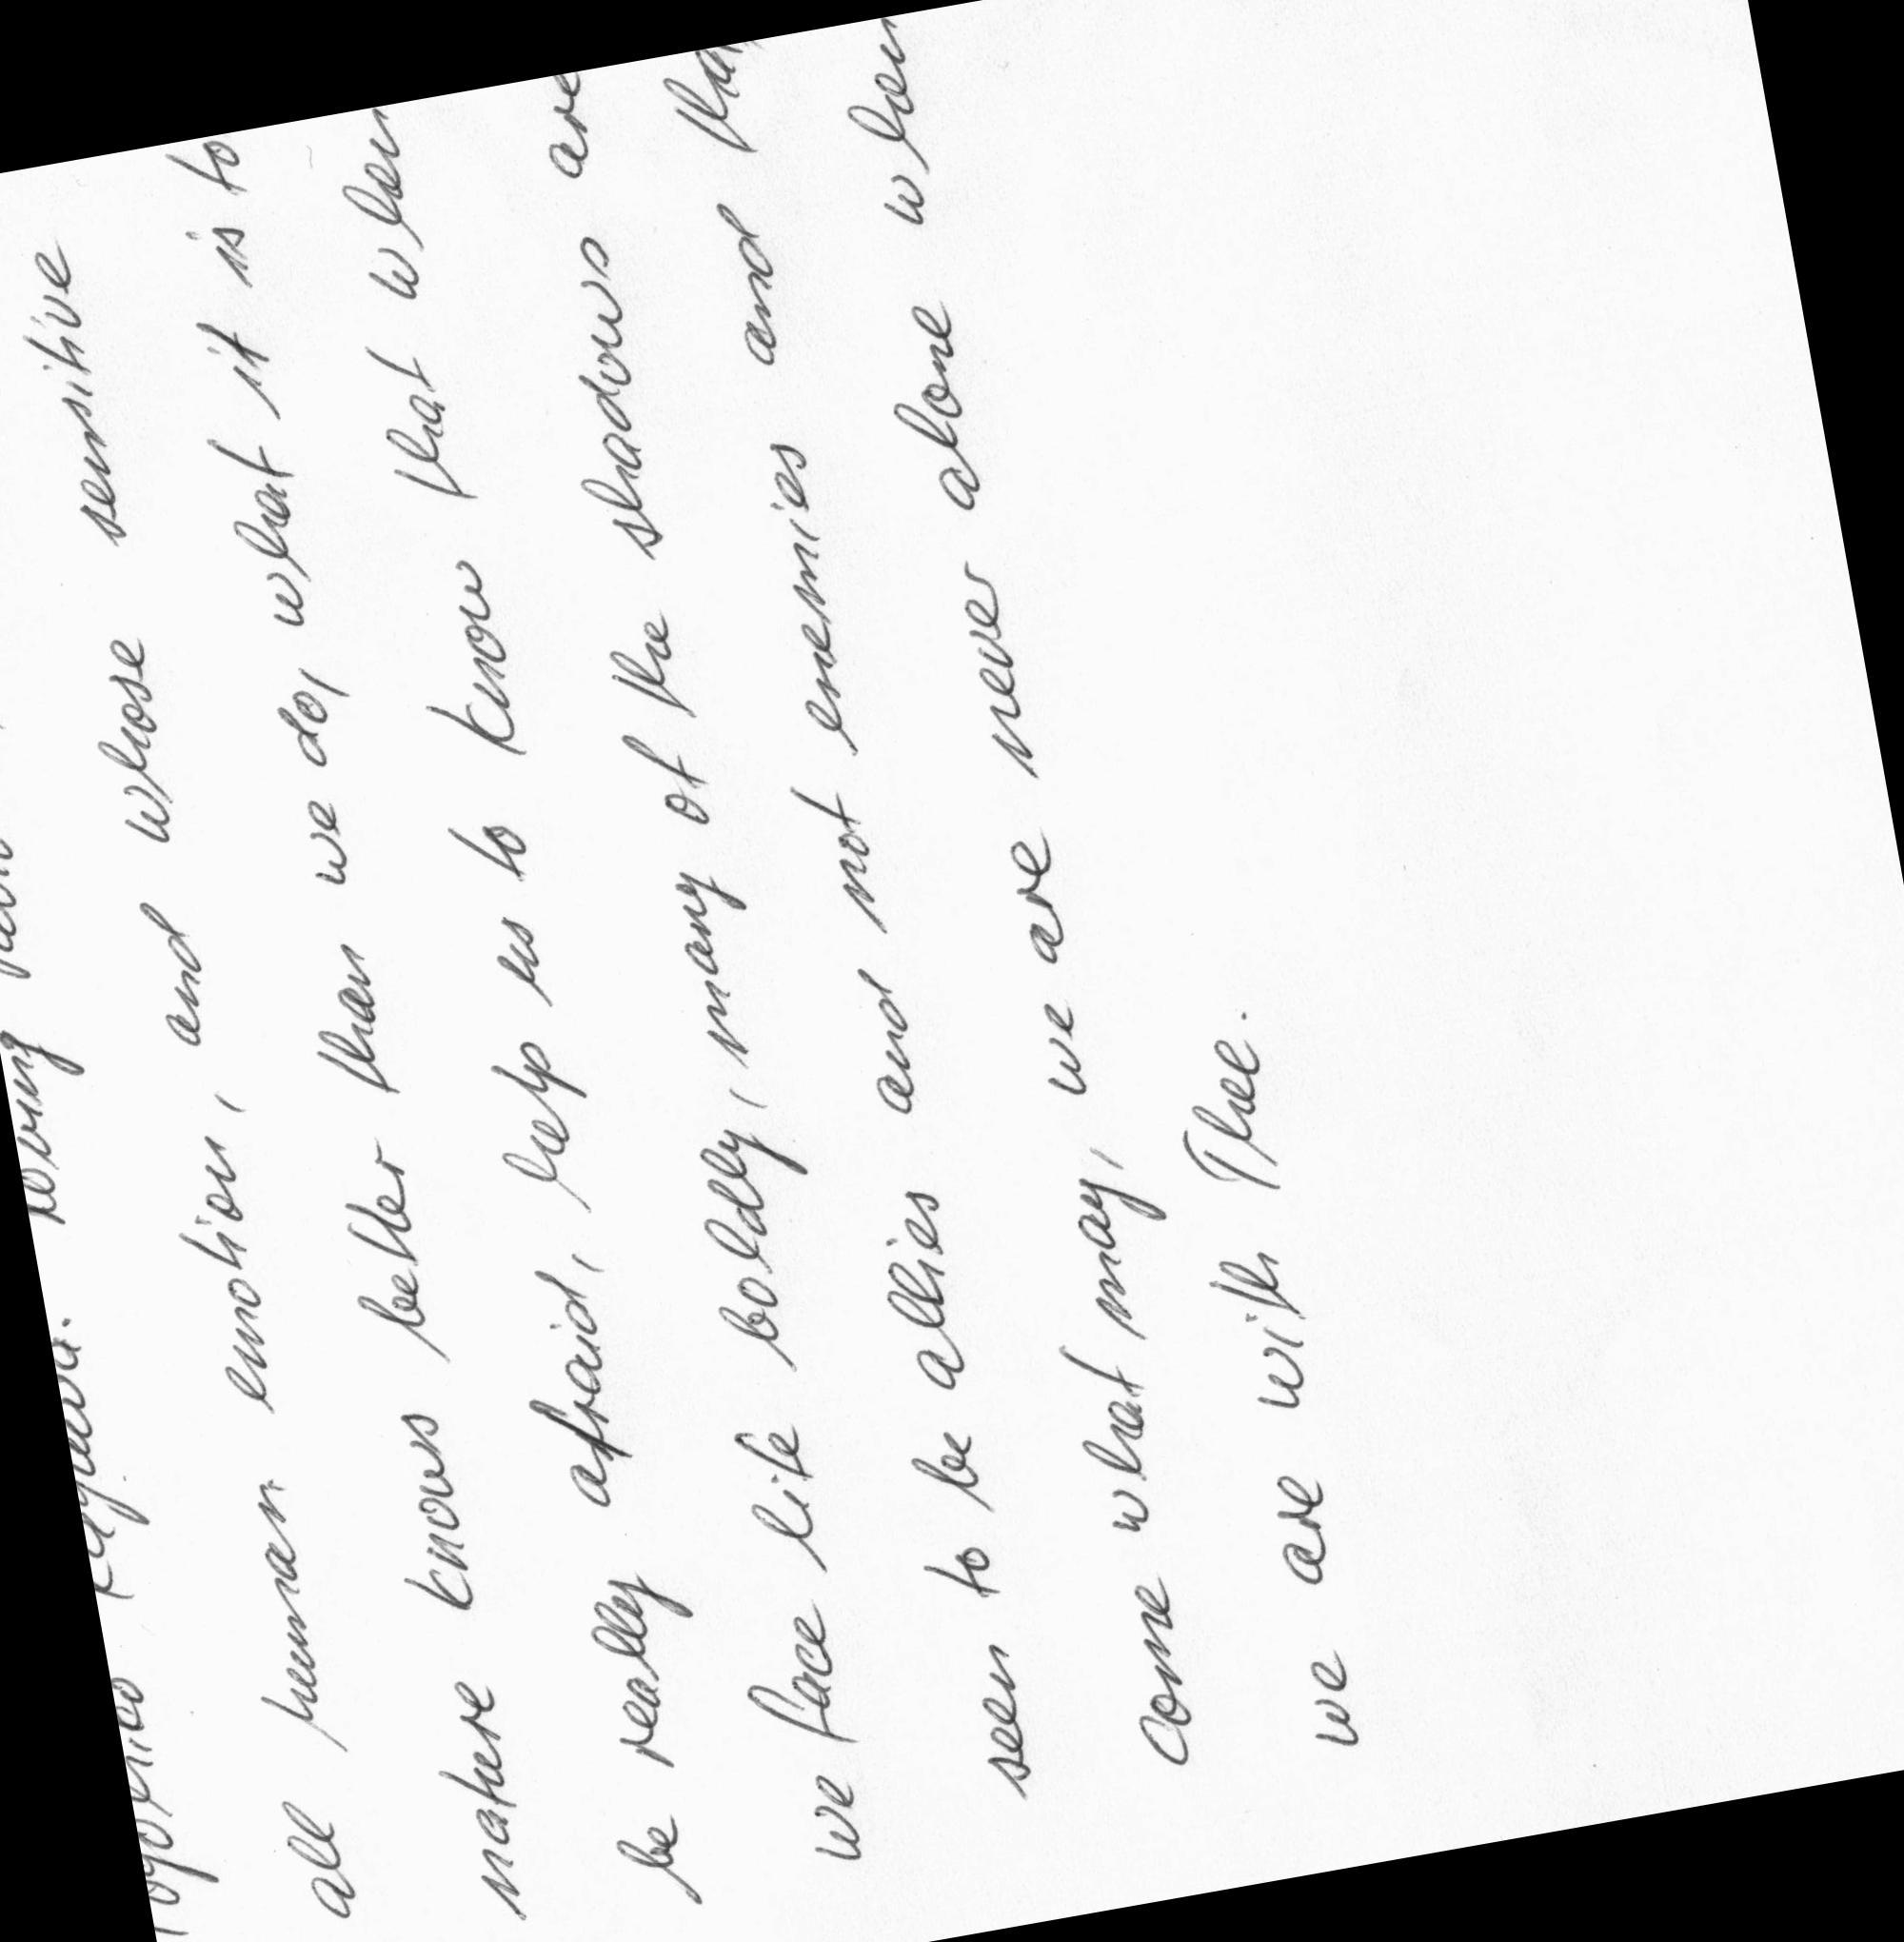 Toyohiko Kagawa: loving
all human emotion, and whose sensitive
nature knows better than we do, what it is to
be really afraid, help us to know that when
we face life boldly, many of the shadows are
seen to be allies and not enemies and that
come what may, we are never alone when
we are with Thee.